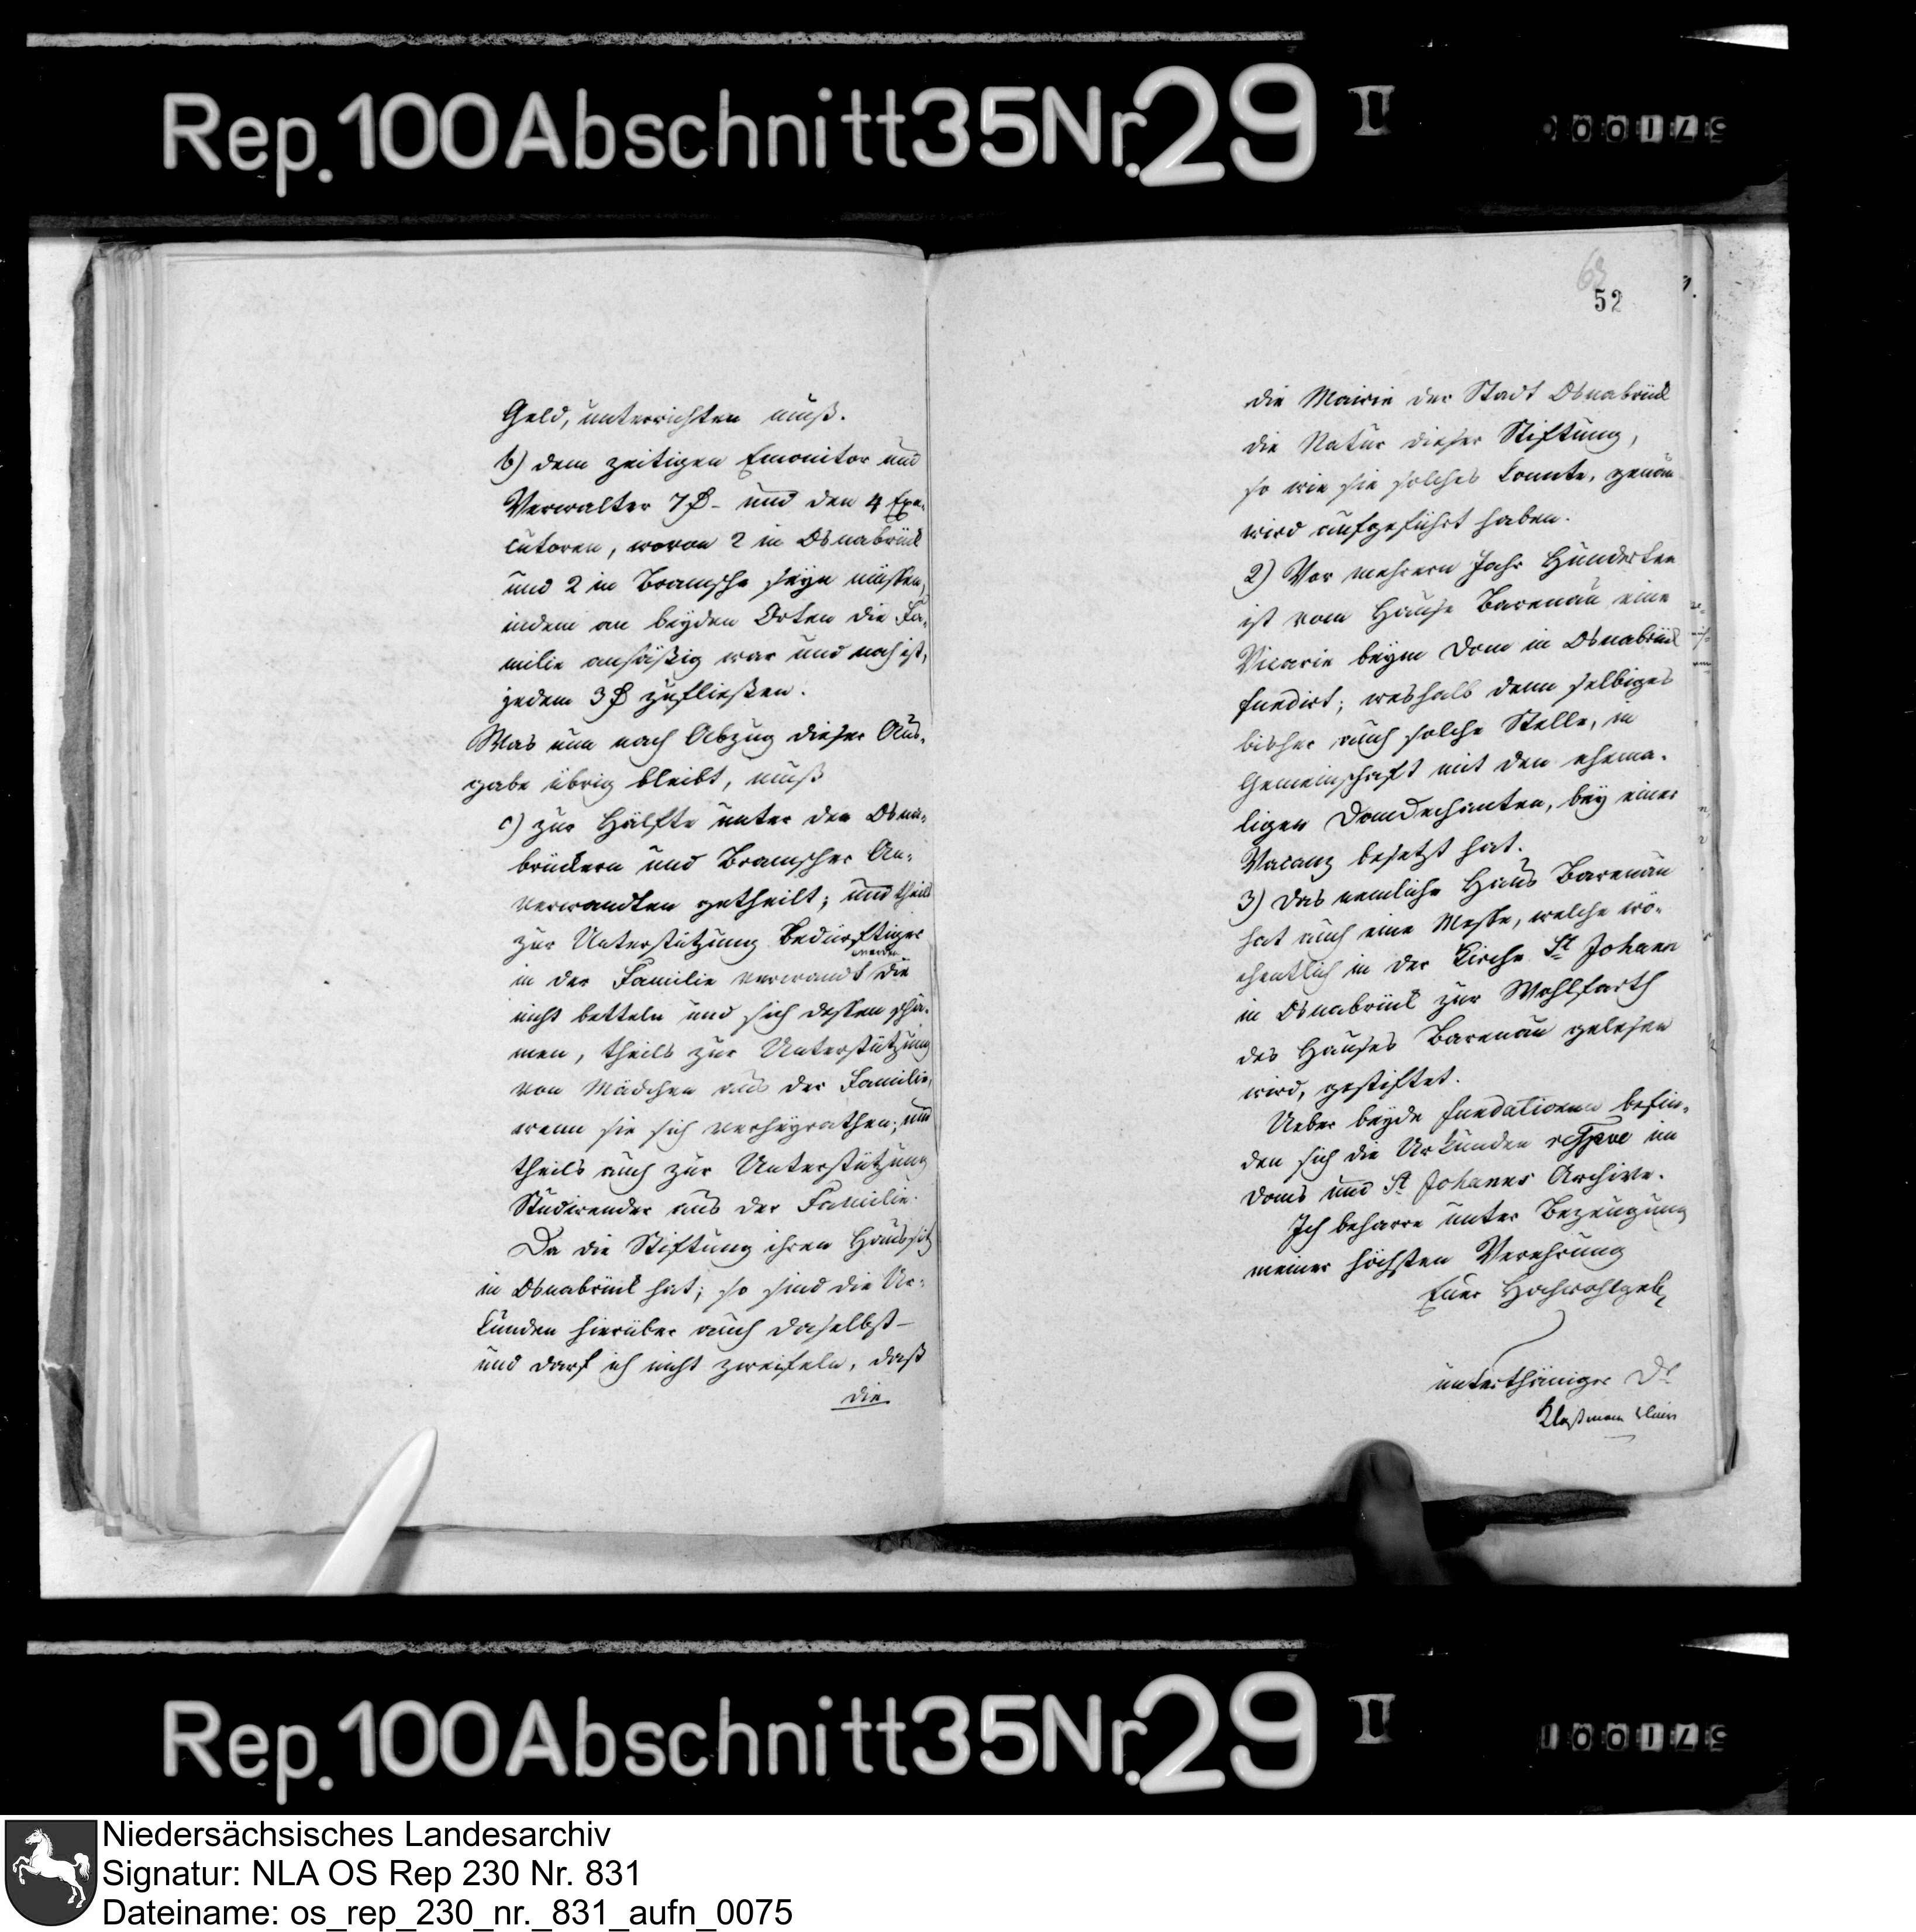 Rep. 100 Abschnitt 35 Nr. 29 II
Geld, unterrichten muß.
b) dem zeitigen Emonitor und
Verwalter 7 ₰ - und den 4 Exe-
cutoren, wovon 2 in Osnabrück
und 2 in Bramsche seyn müssen,
indem an beyden Orten die Fa-
milie ansäßig war und noch ist,
jedem 3 ₰ zufließen.
Was nun nach Abzug dieser Aus-
gabe übrig bleibt, muß
c) zur Hälfte unter den Osna-
brückern und Bramscher An-
verwandten getheilt; und theils
zur Unterstützung Bedürftiger
werden
in der Familie verwandt die
nicht betteln und sich dessen schä-
men, theils zur Unterstützung
von Mädchen aus der Familie,
wenn sie sich verheyrathen; und
theils auch zur Unterstützung
Studirender aus der Familie.
Da die Stiftung ihren Haussitz
in Osnabrück hat; so sind die Ur-
kunden hierüber auch daselbst -
und darf ich nicht zweifeln, daß
die
52
die Mairie der Stadt Osnabrück
die Natur dieser Stiftung,
so wie sie solches konnte, genau
wird aufgeführt haben.
2) Vor mehrern Jahr Hunderten
ist vom Hause Barenau eine
Vicarie beym Dom in Osnabrück
fundirt; weshalb denn selbiges
bisher auch solche Stelle, in
Gemeinschaft mit den ehema-
ligen Domdechanten, bey einer
Vacanz besetzt hat.
3) Das nemliche Haus Barenau
hat auch eine Messe, welche wö-
chentlich in der Kirche St Johann
in Osnabrück zur Wohlfarth
des Hauses Barenau gelesen
wird, gestiftet.
Ueber beyde fundationen befin-
den sich die Urkunden respve im
Doms und St Johannes Archive.
Ich beharre unter Bezeugung
meiner höchsten Verehrung
Euer Hochwohlgeb
unterthäniger Dr
Rep. 100 Abschnitt 35 Nr. 29 II
Niedersächsisches Landesarchiv
Signatur: NLA OS Rep 230 Nr. 831
Dateiname: os_rep_230_nr._831_aufn_0075